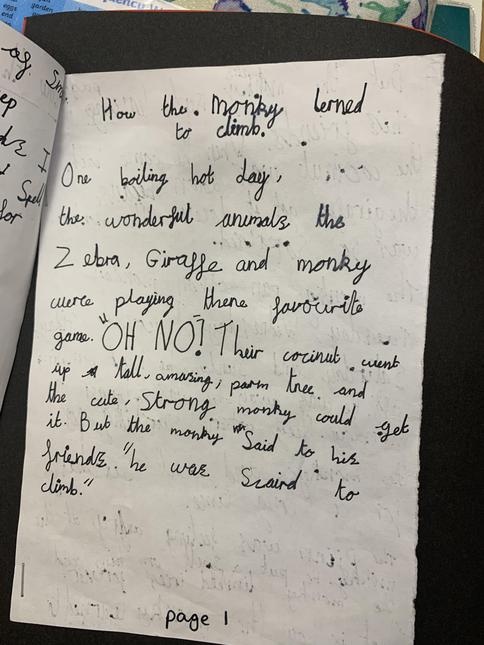 eggs
end
garden
quency W
og. Sm
ep
I
Spell
for
How the monky lerned
to climb.
One boiling hot day,
the wonderful anumals, the
Zebra, Giraffe and monky
werce playing there favourite
game. "OH NO"! Their cocinut went
up tall, amasing, parm tree and
the cute, Strong monky could get
it. But the monky Said to his
friends. "he was Scaird to
climb."
page 1